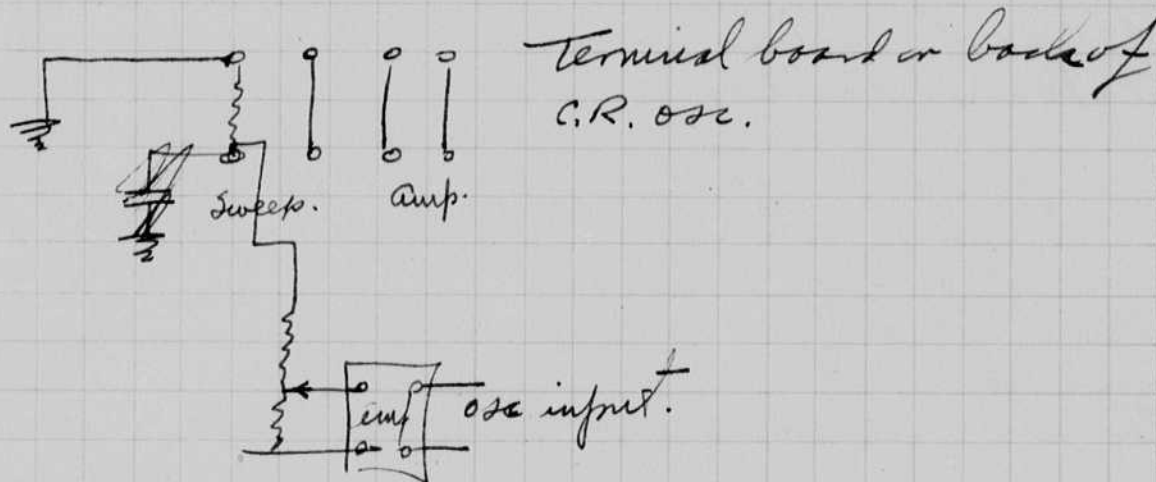 Terminal board on back of
C.R. osc.
Sweep. Amp.
amp osc input.